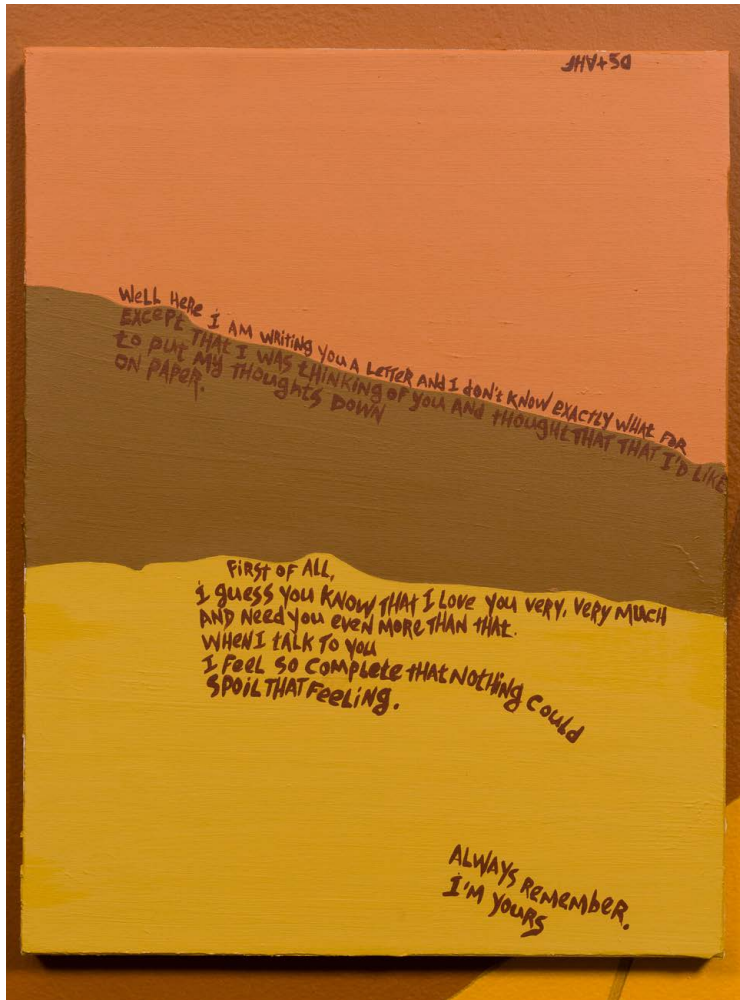 DS+AHF
WELL HERE I AM WRITING YOU A LETTER AND I DON'T KNOW EXACTLY WHAT FOR
EXCEPT THAT I WAS THINKING OF YOU AND THOUGHT THAT THAT I'D LIKE
TO PUT MY THOUGHTS DOWN
ON PAPER.
FIRST OF ALL,
I GUESS YOU KNOW THAT I LOVE YOU VERY, VERY MUCH
AND NEED YOU EVEN MORE THAN THAT.
WHEN I TALK TO YOU
I FEEL SO COMPLETE THAT NOTHING COULD
SPOIL THAT FEELING.
ALWAYS REMEMBER.
I'M YOURS